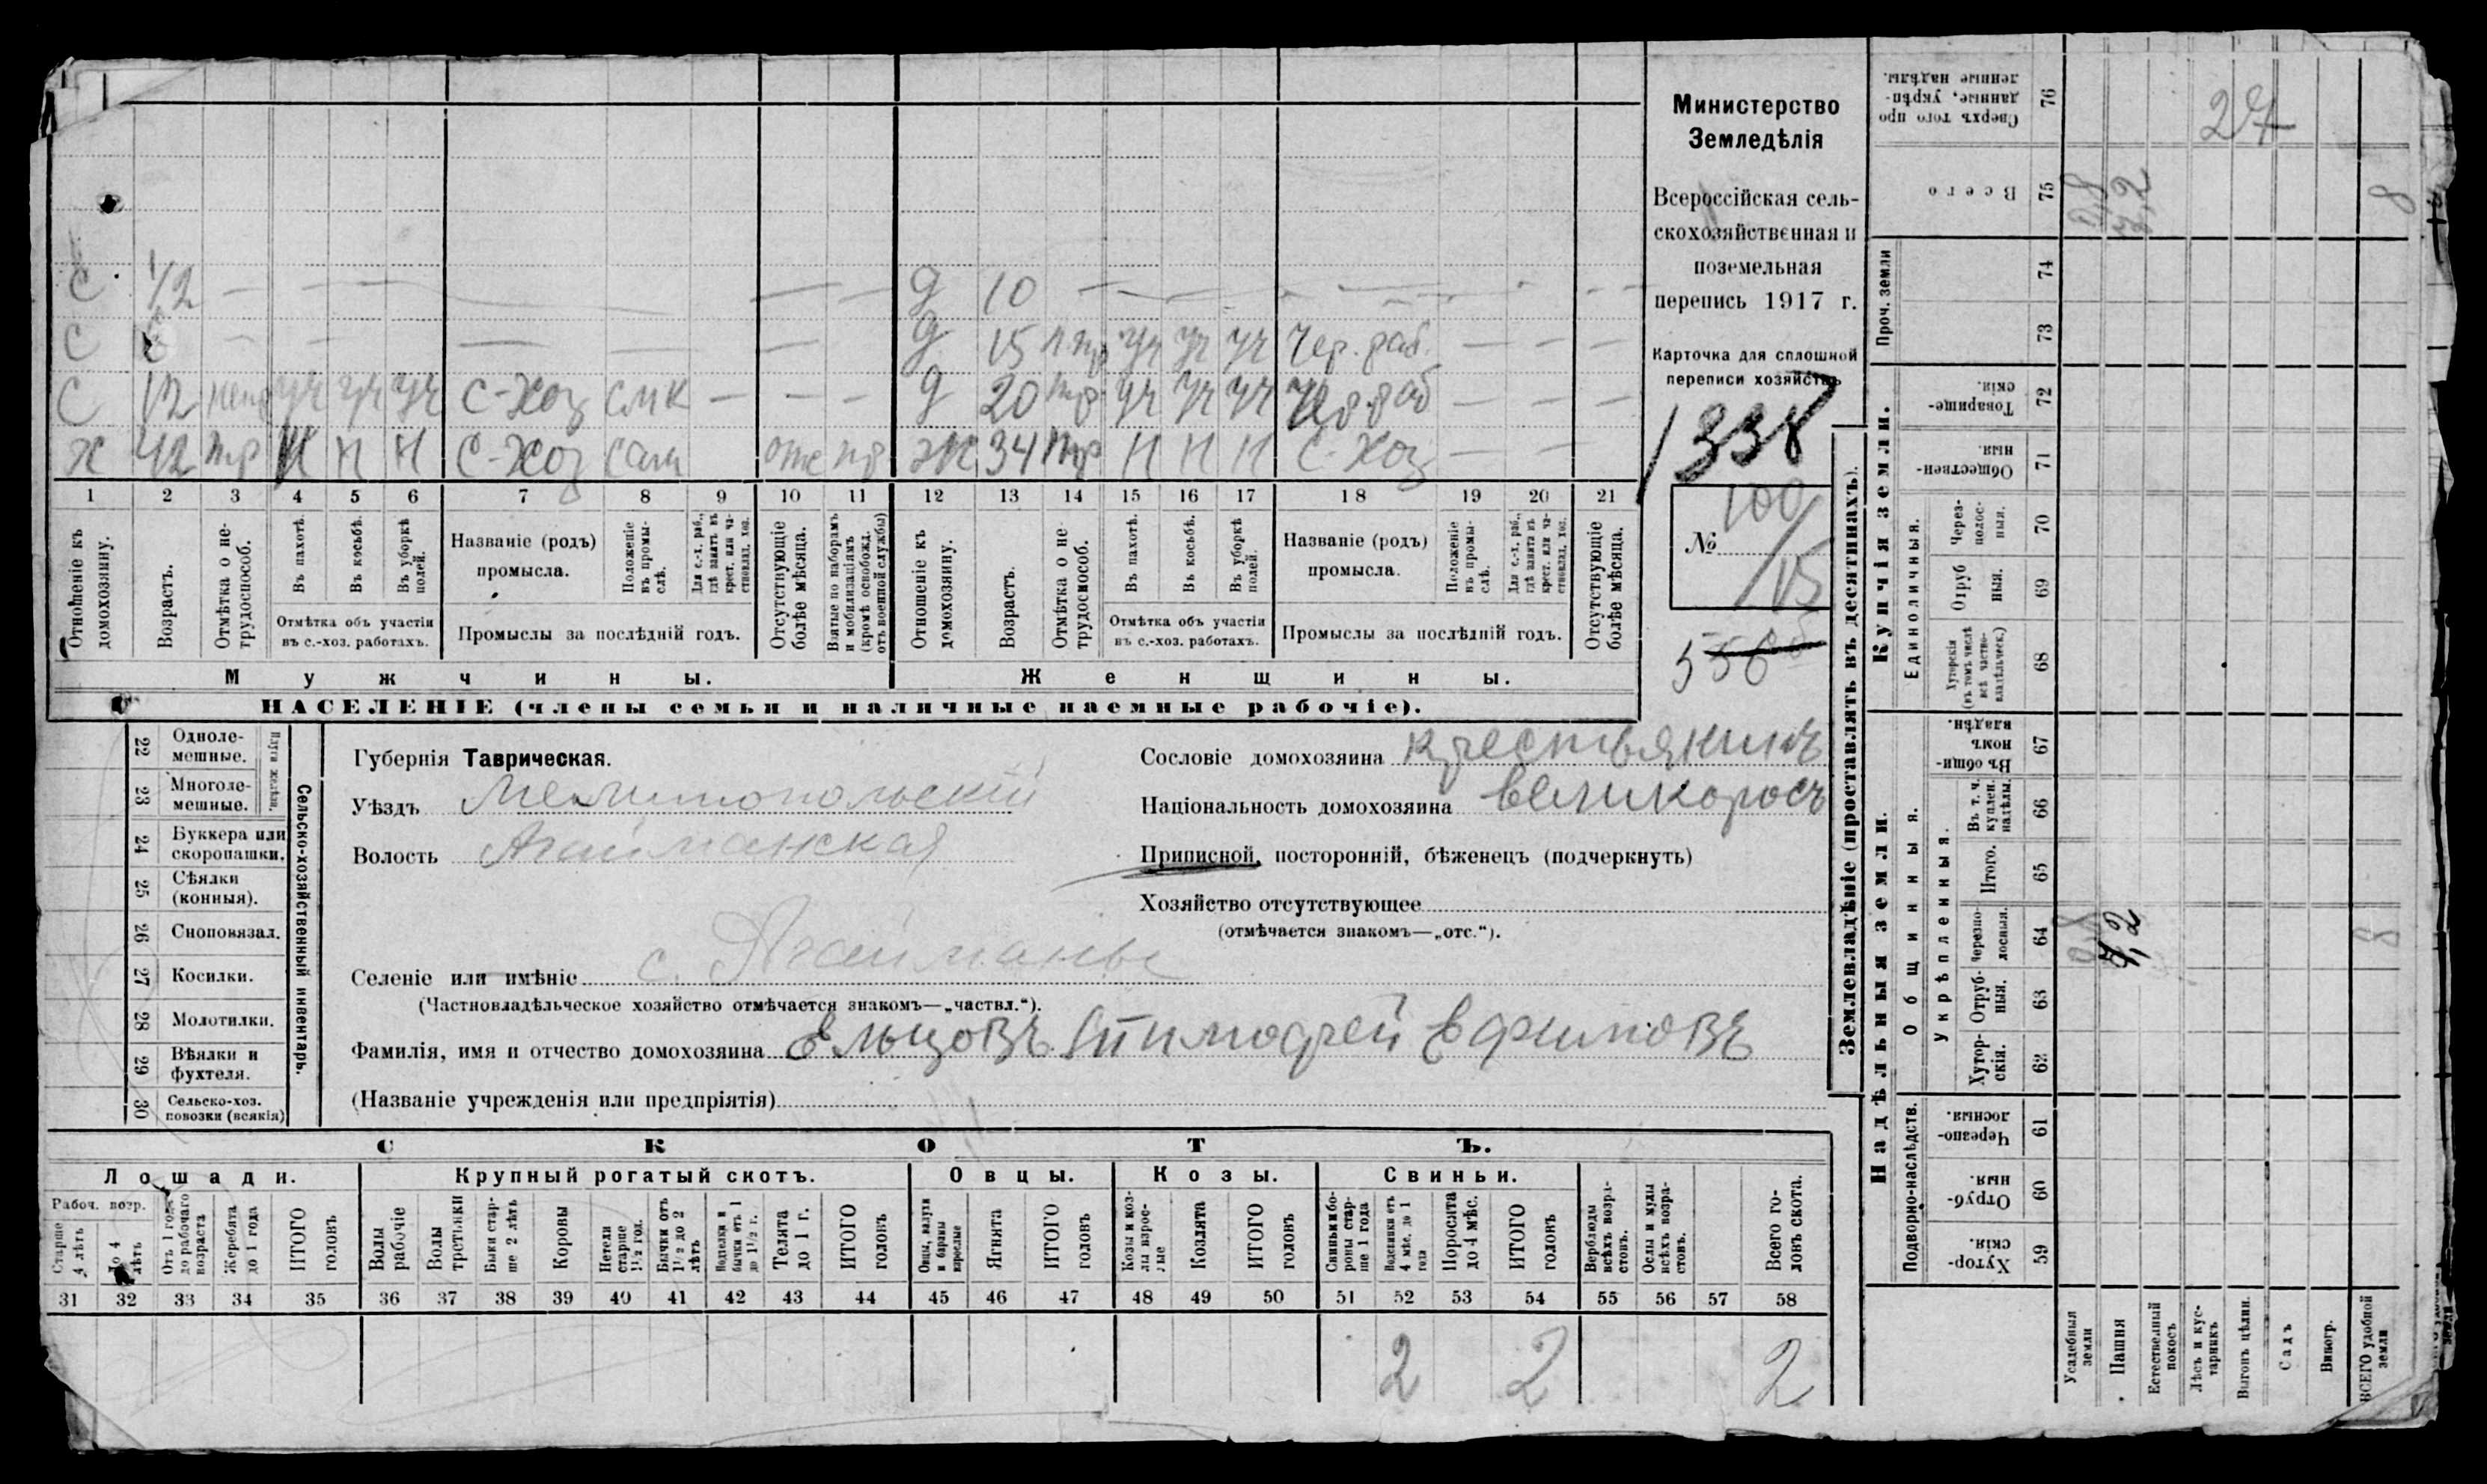 С 1/2 — — — — — — Д 10 — — — — — — —
С 6 — — — — — — Д 15 п тр уч уч уч Чер. раб. — — —
С 12 непр уч уч уч С-Хоз СМК — — — Д 20 тр уч уч уч Чер. раб — — —
Х 42 тр Н Н Н С-Хоз сам отс пр Ж 34 тр Н Н Н С-Хоз — — —
1 2 3 4 5 6 7 8 9 10 11 12 13 14 15 16 17 18 19 20 21
Отношеніе къ домохозяину.
Возрастъ.
Отмѣтка о не-трудоспособ.
Въ пахотѣ.
Въ косьбѣ.
Въ уборкѣ полей.
Отмѣтка объ участіи
въ с.-хоз. работахъ.
Названіе (родъ)
промысла.
Положеніе въ промы-слѣ.
Для с.-х. раб., гдѣ занятъ въ крест. или ча-стновлад. хоз.
Промыслы за послѣдній годъ.
Отсутствующіе болѣе мѣсяца.
Взятые по наборамъ и мобилизаціямъ (кромѣ освобожд. отъ военной службы)
Отношеніе къ домохозяину.
Возрастъ.
Отмѣтка о не-трудоспособ.
Въ пахотѣ.
Въ косьбѣ.
Въ уборкѣ полей.
Отмѣтка объ участіи
въ с.-хоз. работахъ.
Названіе (родъ)
промысла.
Положеніе въ промы-слѣ.
Для с.-х. раб., гдѣ занята въ крест. или ча-стновлад. хоз.
Промыслы за послѣдній годъ.
Отсутствующіе болѣе мѣсяца.
Мужчины.
Женщины.
НАСЕЛЕНІЕ (члены семьи и наличные наемные рабочіе).
Министерство
Земледѣлія
Всероссійская сель-
скохозяйственная и
поземельная
перепись 1917 г.
Карточка для сплошной
переписи хозяйствъ
1338
№ 100/15
22 Одноле-мешные.
23 Многоле-мешные.
Плуги желѣзн.
24 Буккера или скоропашки.
25 Сѣялки (конныя).
26 Сноповязал.
27 Косилки.
28 Молотилки.
29 Вѣялки и фухтеля.
30 Сельско-хоз. повозки (всякія)
Сельско-хозяйственный инвентарь.
Губернія Таврическая.
Уѣздъ Мелитопольскій
Волость Агайманская
Селеніе или имѣніе с. Агайманы
(Частновладѣльческое хозяйство отмѣчается знакомъ—„частвл.“).
Фамилія, имя и отчество домохозяина Ельцовъ Тимофей Ефимовъ
(Названіе учрежденія или предпріятія)
Сословіе домохозяина крестьянинъ
Національность домохозяина великоросъ
Приписной, посторонній, бѣженецъ (подчеркнуть)
Хозяйство отсутствующее
(отмѣчается знакомъ—„отс.“).
СКОТЪ.
Лошади. Крупный рогатый скотъ. Овцы. Козы. Свиньи.
Рабоч. возр.
Старше 4 лѣтъ
До 4 лѣтъ
Отъ 1 года до рабочаго возраста
Жеребята до 1 года
ИТОГО головъ
Волы рабочіе
Волы третьяки
Быки стар-ше 2 лѣтъ
Коровы
Нетели старше 1½ год.
Бычки отъ 1½ до 2 лѣтъ
Подтелки и бычки отъ 1 до 1½ г.
Телята до 1 г.
ИТОГО головъ
Овцы, валухи и бараны взрослые
Ягнята
ИТОГО головъ
Козы и коз-лы взрос-лые
Козлята
ИТОГО головъ
Свиньи и бо-ровы стар-ше 1 года
Подсвинки отъ 4 мѣс. до 1 года
Поросята до 4 мѣс.
ИТОГО головъ
Верблюды всѣхъ возра-стовъ.
Ослы и мулы всѣхъ возра-стовъ.
Всего го-ловъ скота.
31 32 33 34 35 36 37 38 39 40 41 42 43 44 45 46 47 48 49 50 51 52 53 54 55 56 57 58
2 2 2
Землевладѣніе (проставлять въ десятинахъ).
Надѣльныя земли.
Купчія земли.
Проч. земли
Подворно-наслѣдств.
Общинныя.
Укрѣпленныя.
Единоличныя.
Сверхъ того про данные, укрѣп-ленные надѣлы. 76 27
Всего 75 0,8 7,2 8
74
73
Товарище-скія. 72
Обществен-ныя. 71
Через-полос-ныя. 70
Отруб ныя. 69
Хуторскія (въ томъ числѣ всѣ частно-владѣльческ.) 68
Въ общи-номъ владѣн. 67
Въ т. ч. куплен. надѣлы. 66
Итого. 65
Черезпо-лосныя. 64 0,8 7,2 8
Отруб-ныя. 63
Хутор-скія. 62
Черезпо-лосныя. 61
Отруб-ныя. 60
Хутор-скія. 59
Усадебныя земли
Пашня
Естественный покосъ
Лѣсъ и кус-тарникъ
Выгонъ цѣлин.
Садъ
Виногр.
ВСЕГО удобной земли